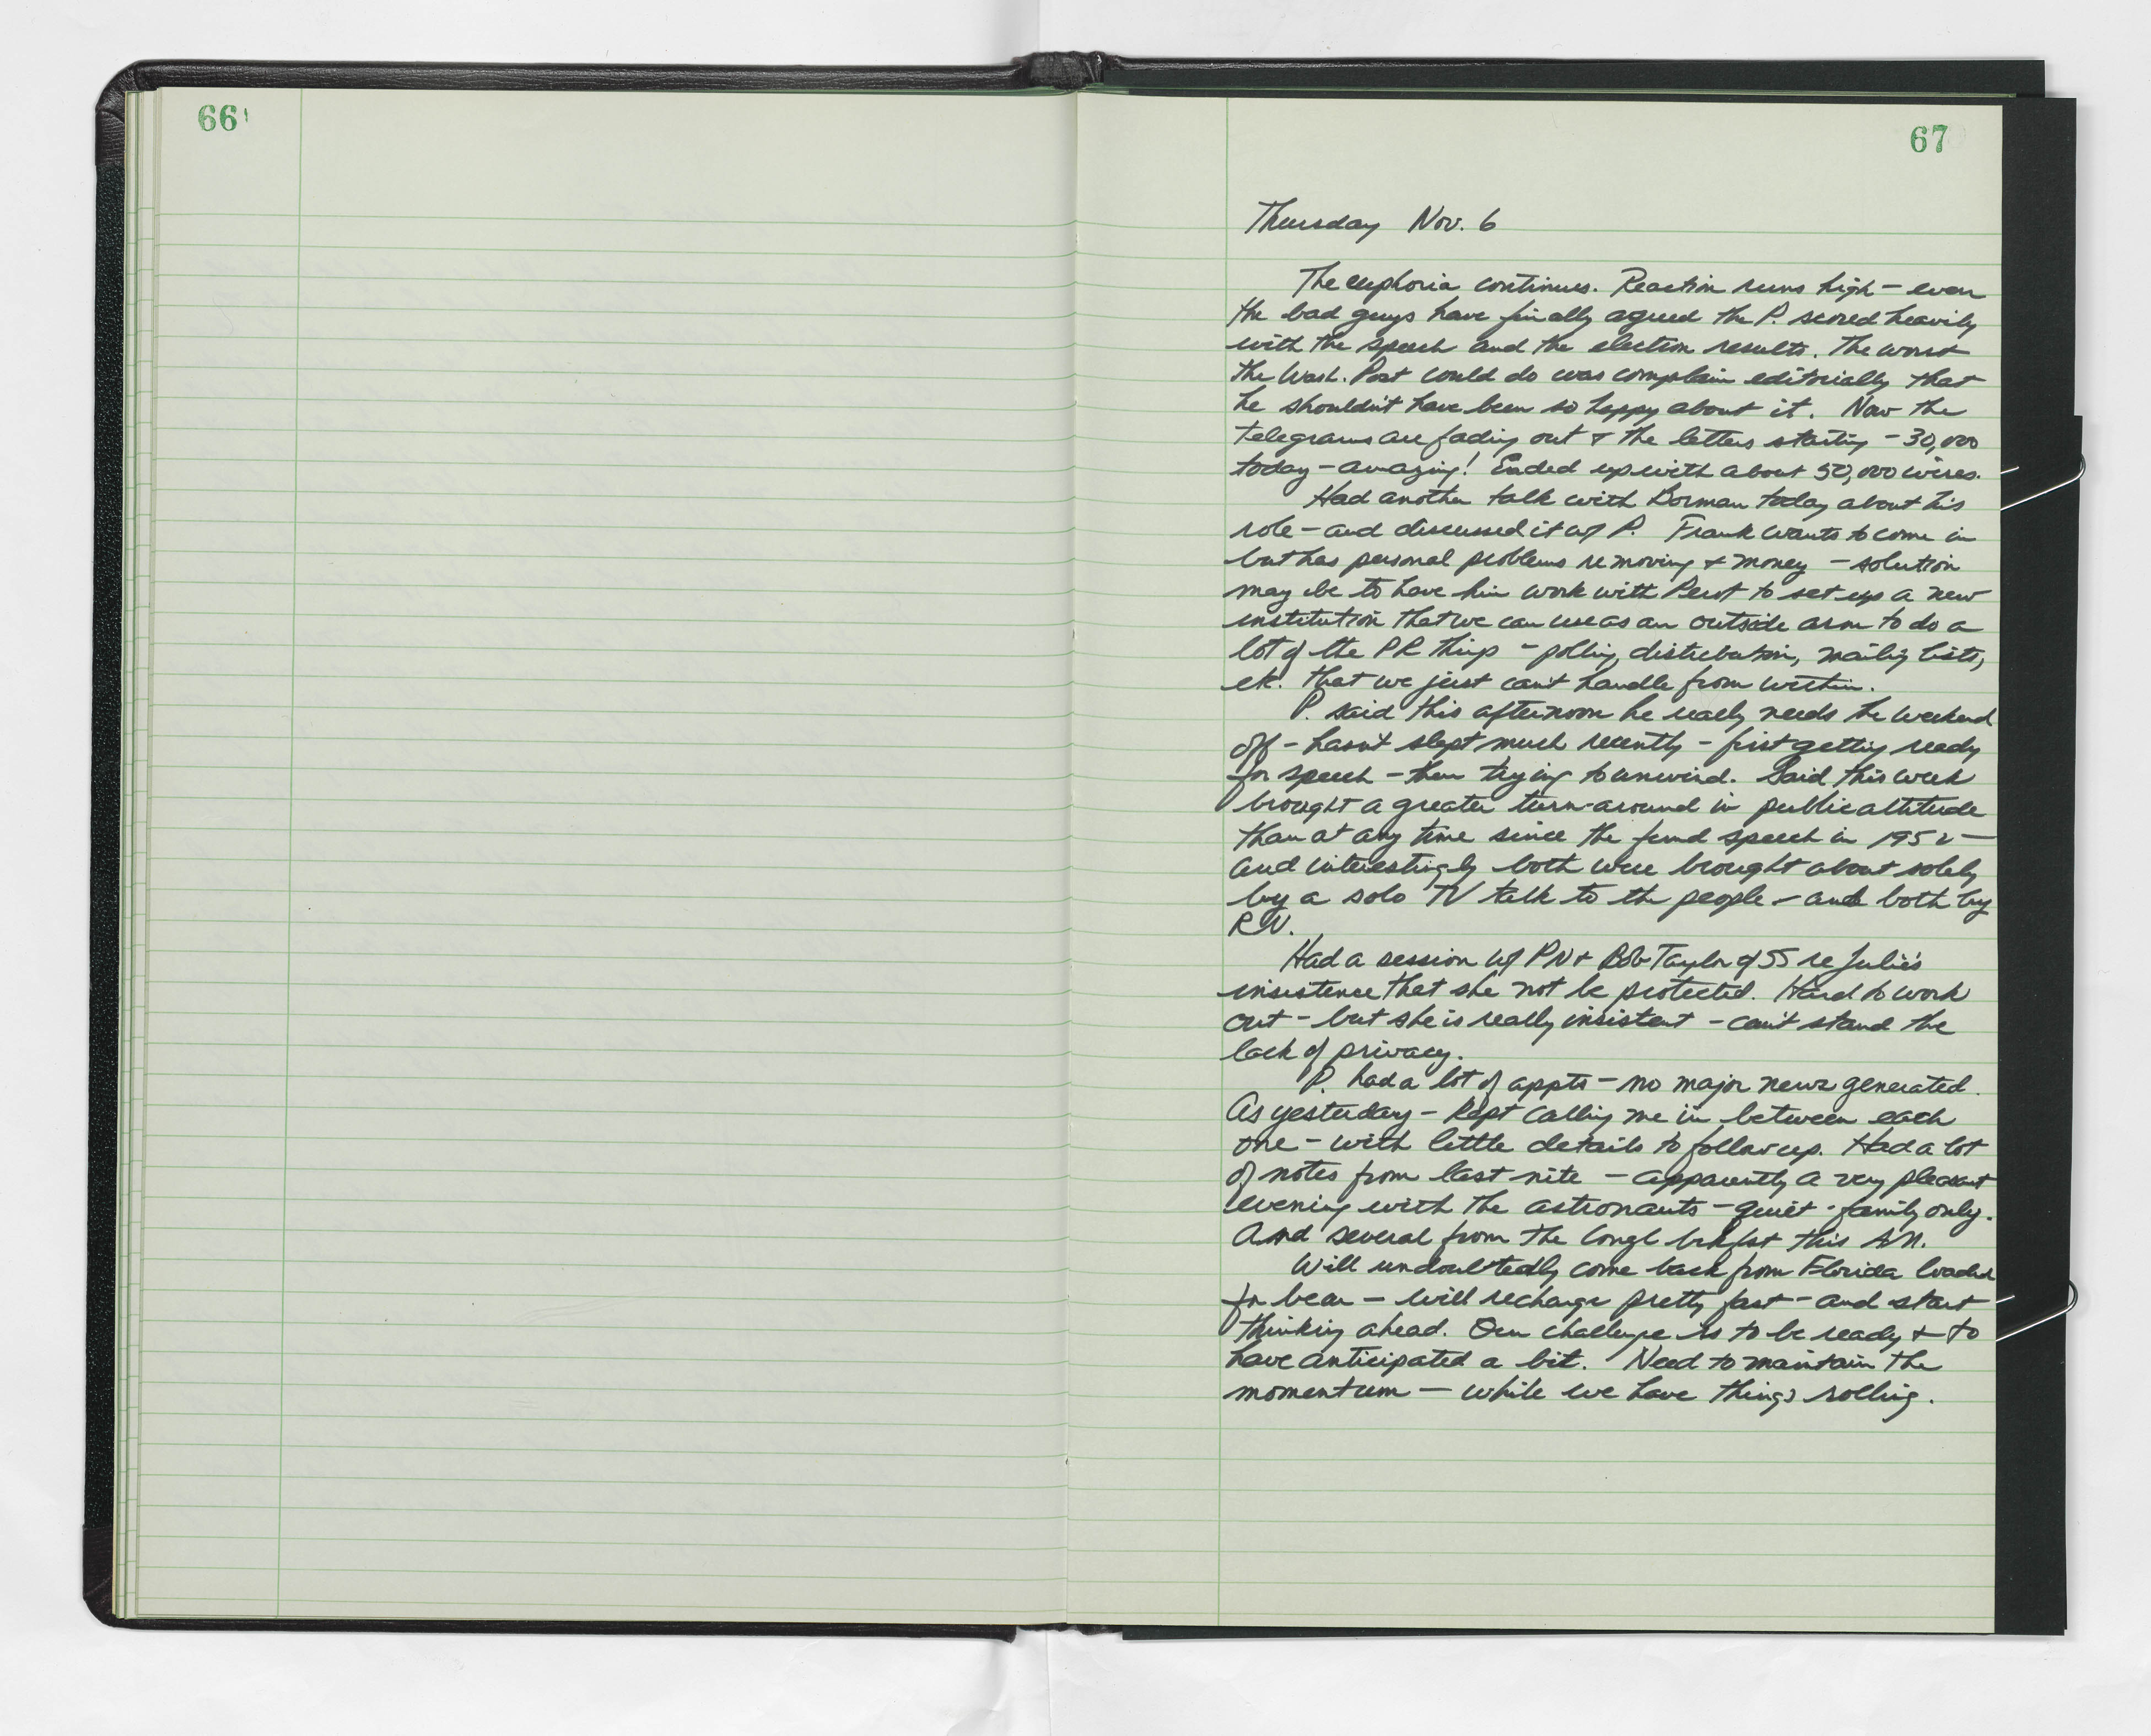 66
67
Thursday Nov. 6
The euphoria continues. Reaction runs high - even
the bad guys have finally agreed the P. scored heavily
with the speech and the election results. The worst
the Wash. Post could do was complain editorially that
he shouldn't have been so happy about it. Now the
telegrams are fading out + the letters starting - 30,000
today - amazing! Ended up with about 50,000 wires.
Had another talk with Borman today about his
role - and discussed it w/ P. Frank wants to come in
but has personal problems re moving + money - solution
may be to have him work with Perot to set up a new
institution that we can use as an outside arm to do a
lot of the PR things - polling, distribution, mailing lists,
etc. that we just can't handle from within.
P. said this afternoon he really needs the weekend
off - hasn't slept much recently - first getting ready
for speech - then trying to unwind. Said this week
brought a greater turn-around in public attitude
than at any time since the fund speech in 1952 -
and interestingly both were brought about solely
by a solo TV talk to the people - and both by
RN.
Had a session w/ PN + Bob Taylor of SS re Julie's
insistence that she not be protected. Hard to work
out - but she is really insistent - can't stand the
lack of privacy.
P. had a lot of appts - no major news generated.
As yesterday - kept calling me in between each
one - with little details to follow up. Had a lot
of notes from last nite - apparently a very pleasant
evening with the astronauts - quiet - family only.
And several from the Congl brkfst this AM.
Will undoubtedly come back from Florida loaded
for bear - will recharge pretty fast - and start
thinking ahead. Our challenge is to be ready + to
have anticipated a bit. Need to maintain the
momentum - while we have things rolling.